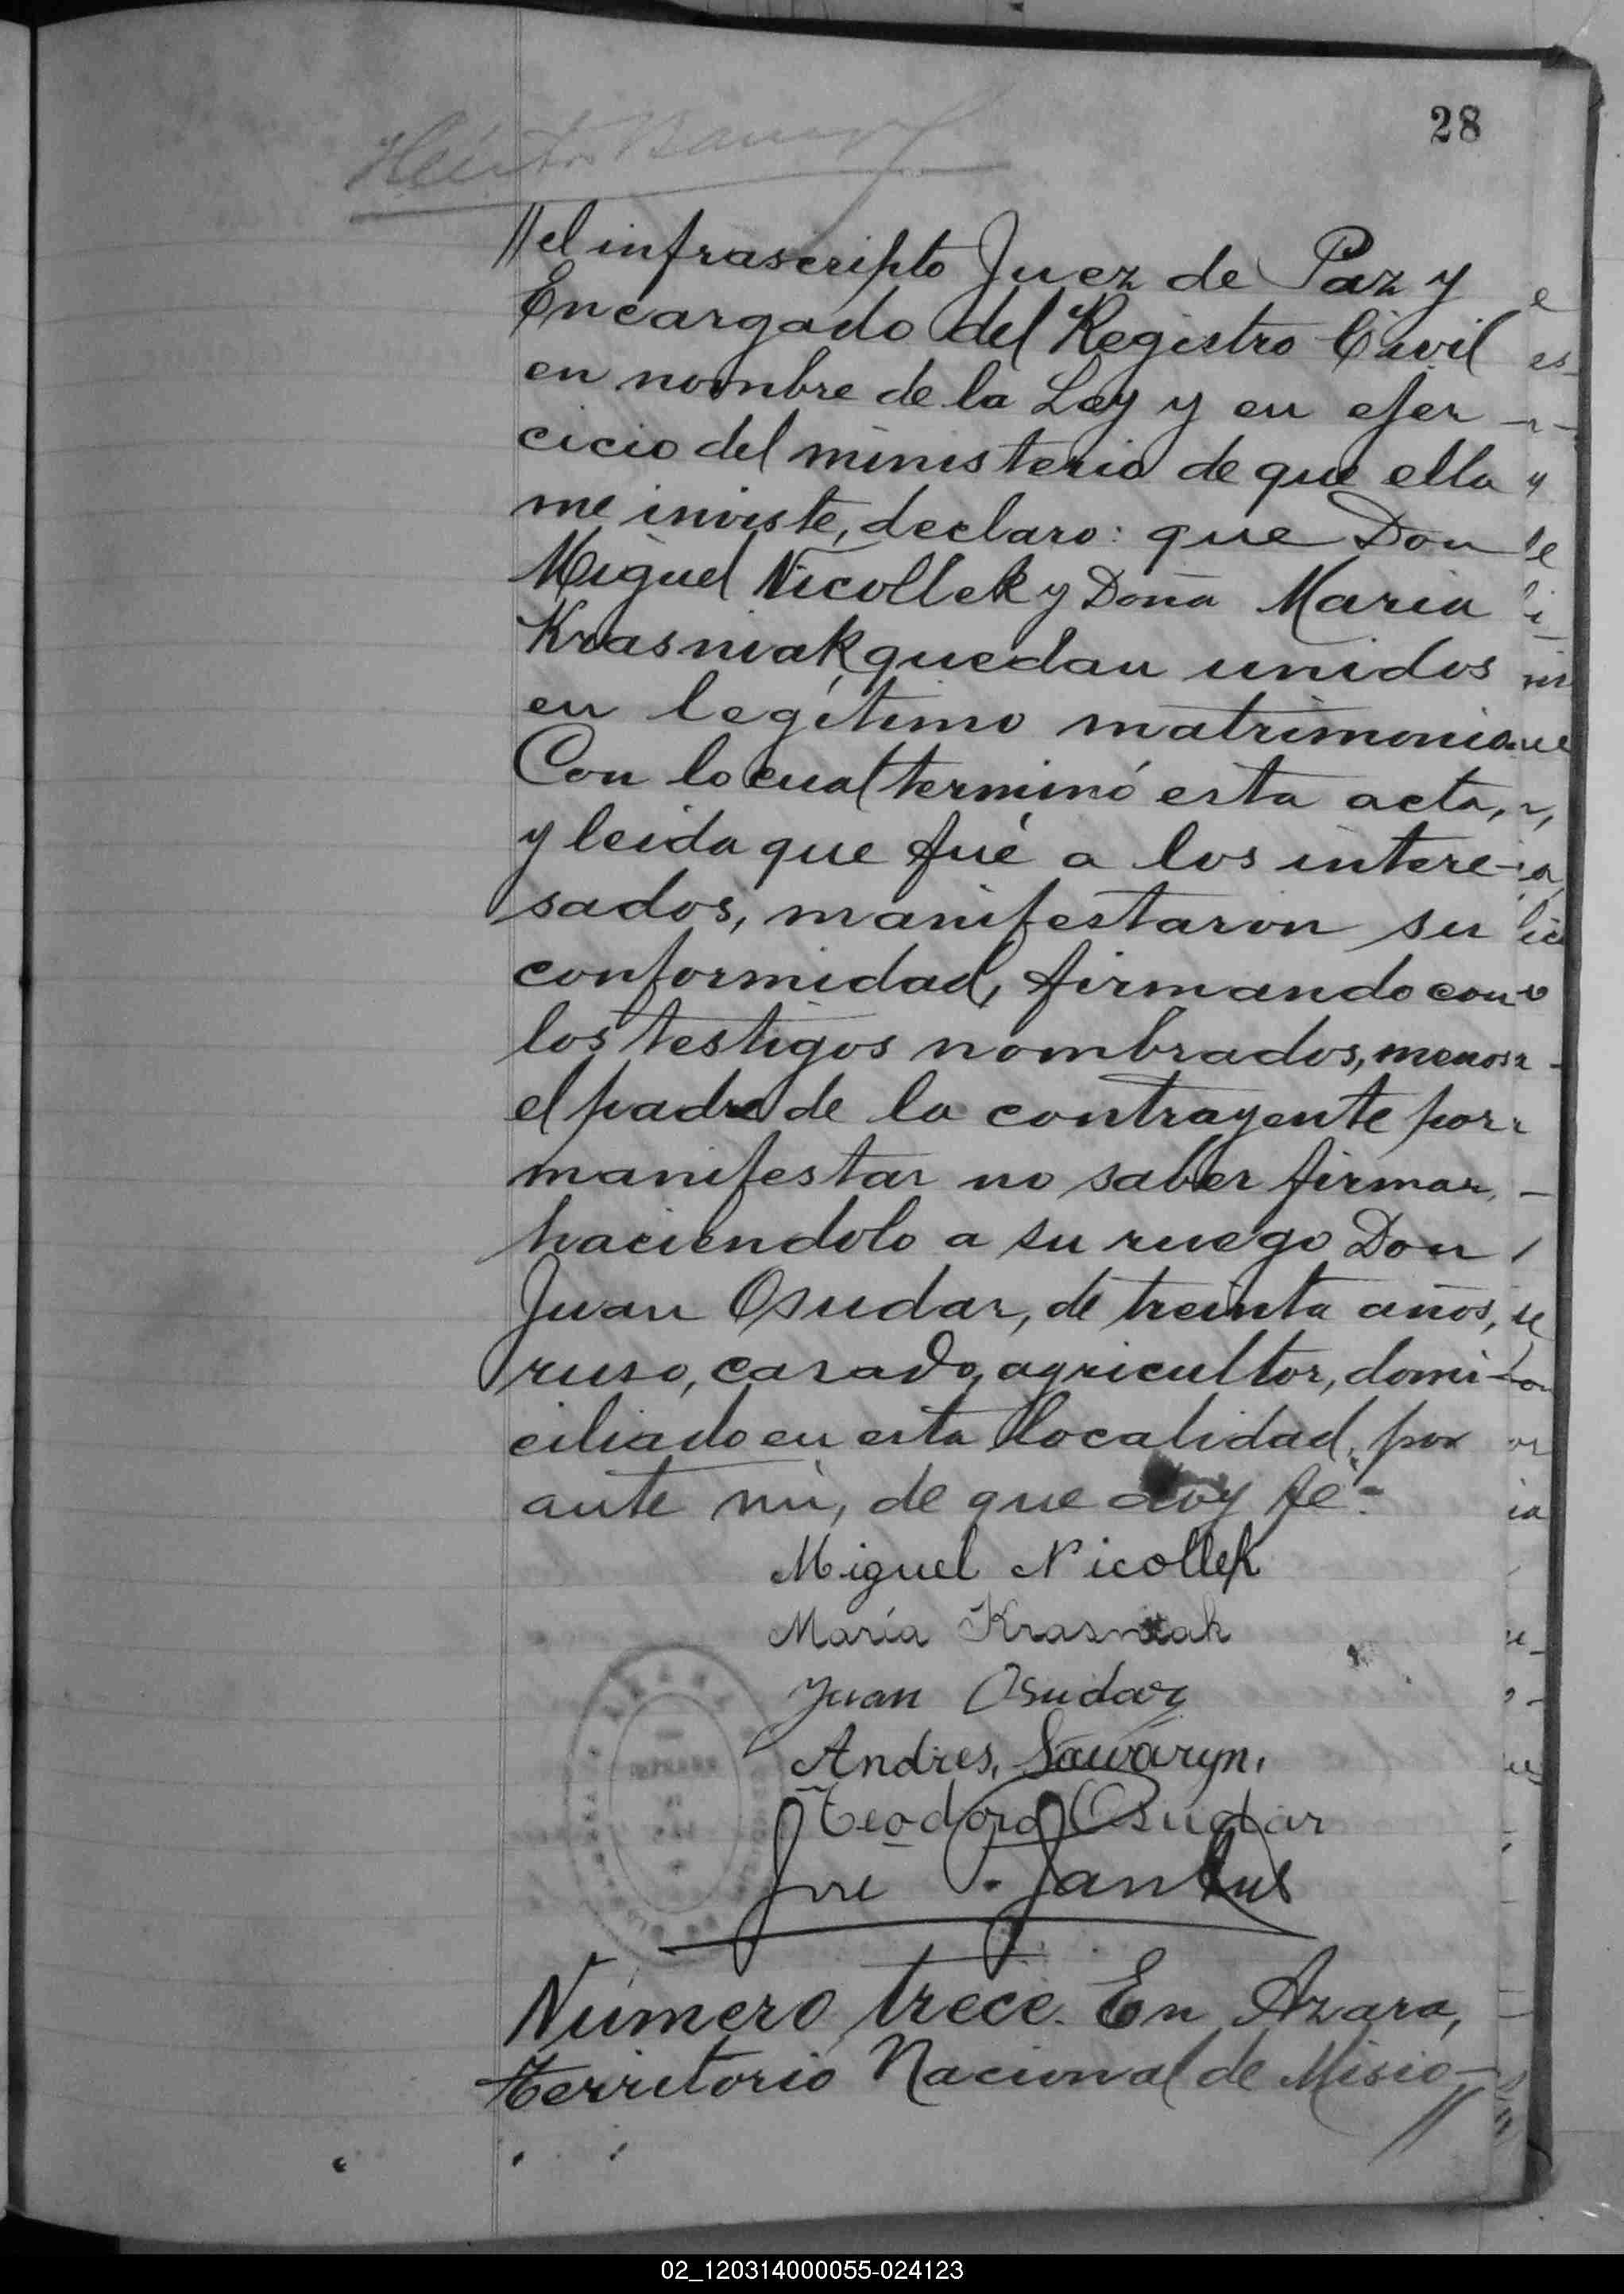 28
// el infrascripto Juez de Paz y
Encargado del Registro Civil
en nombre de la Ley y en ejer
cicio del ministerio de que ella
me inviste, declaro: que Don
Miguel Nicollek y Doña Maria
Krasniak quedan unidos
en legítimo matrimonio.
Con lo cual terminó esta acta,
y leida que fué a los intere-
sados, manifestaron su
conformidad, firmando con
los testigos nombrados, menos
el padre de la contrayente por
manifestar no saber firmar,
haciendolo a su ruego Don
Juan Osudar, de treinta años,
ruso, casado, agricultor, domi-
ciliado en esta localidad, por
ante mi, de que doy fé.-
Miguel Nicollek
María Krasniak
Juan Osudar
Andres, Sawaryn.
Teodoro Osudar
José Jankus
Número trece. En Azara,
territorio Nacional de Misio-
//
02_120314000055-024123